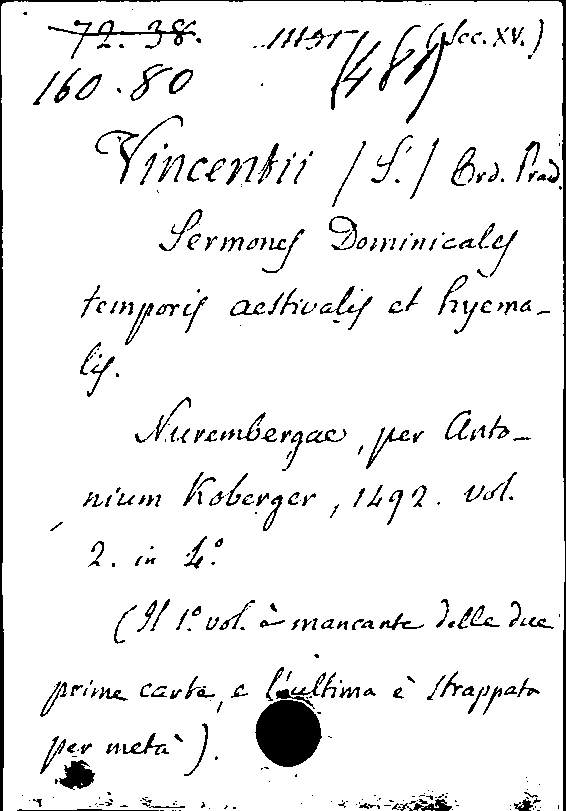 72. 38. (Sec. XV.)
160. 80
Vincentii (S.) Ord. Præd.
Sermones Dominicales
temporis aestivalis et hyema-
lis.
Nurembergae, per Anto-
nium Koberger, 1492. vol.
2. in 4.°
(Il 1.° vol. è mancante delle due
prime carte, e l'ultima è strappata
per metà).